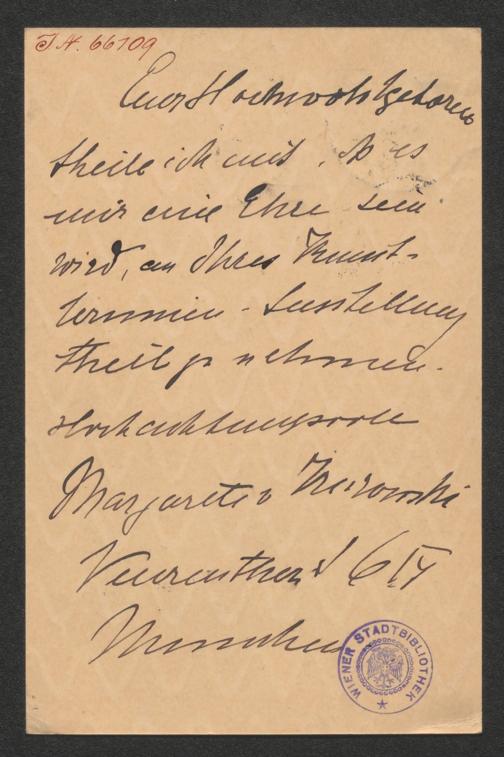 J.N. 66109
Euer Hochwohlgeboren
theile ich mit, dß es
mir eine Ehre sein
wird, an Ihrer Kunst-
lerinnen-Ausstellung
theil zu nehmen.
Hochachtungsvoll
Margarete v
6 IV
München
WIENER STADTBIBLIOTHEK